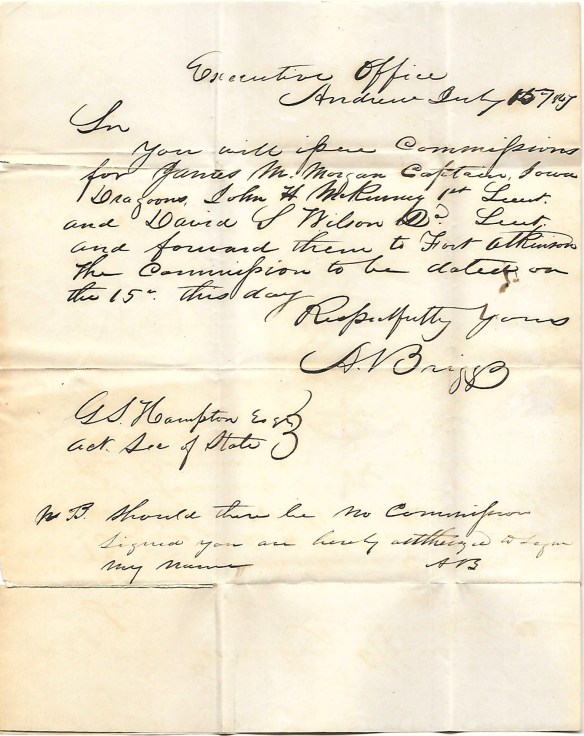 Executive Office
Andrew July 15th 1847
Sir
You will issue Commissions
for James M. Morgan Captain, Iowa
Dragoons, John H McKinney 1st Lieut.
and David S Wilson 2d. Lieut.
and forward them to Fort Atkinson
the Commission to be dated on
the 15th. this day
Respectfully Yours
A. Briggs
G. S. Hampton Esqr
act. Sec of State
N B. Should there be no Commission
signed you are hereby authorized to sign
my name AB